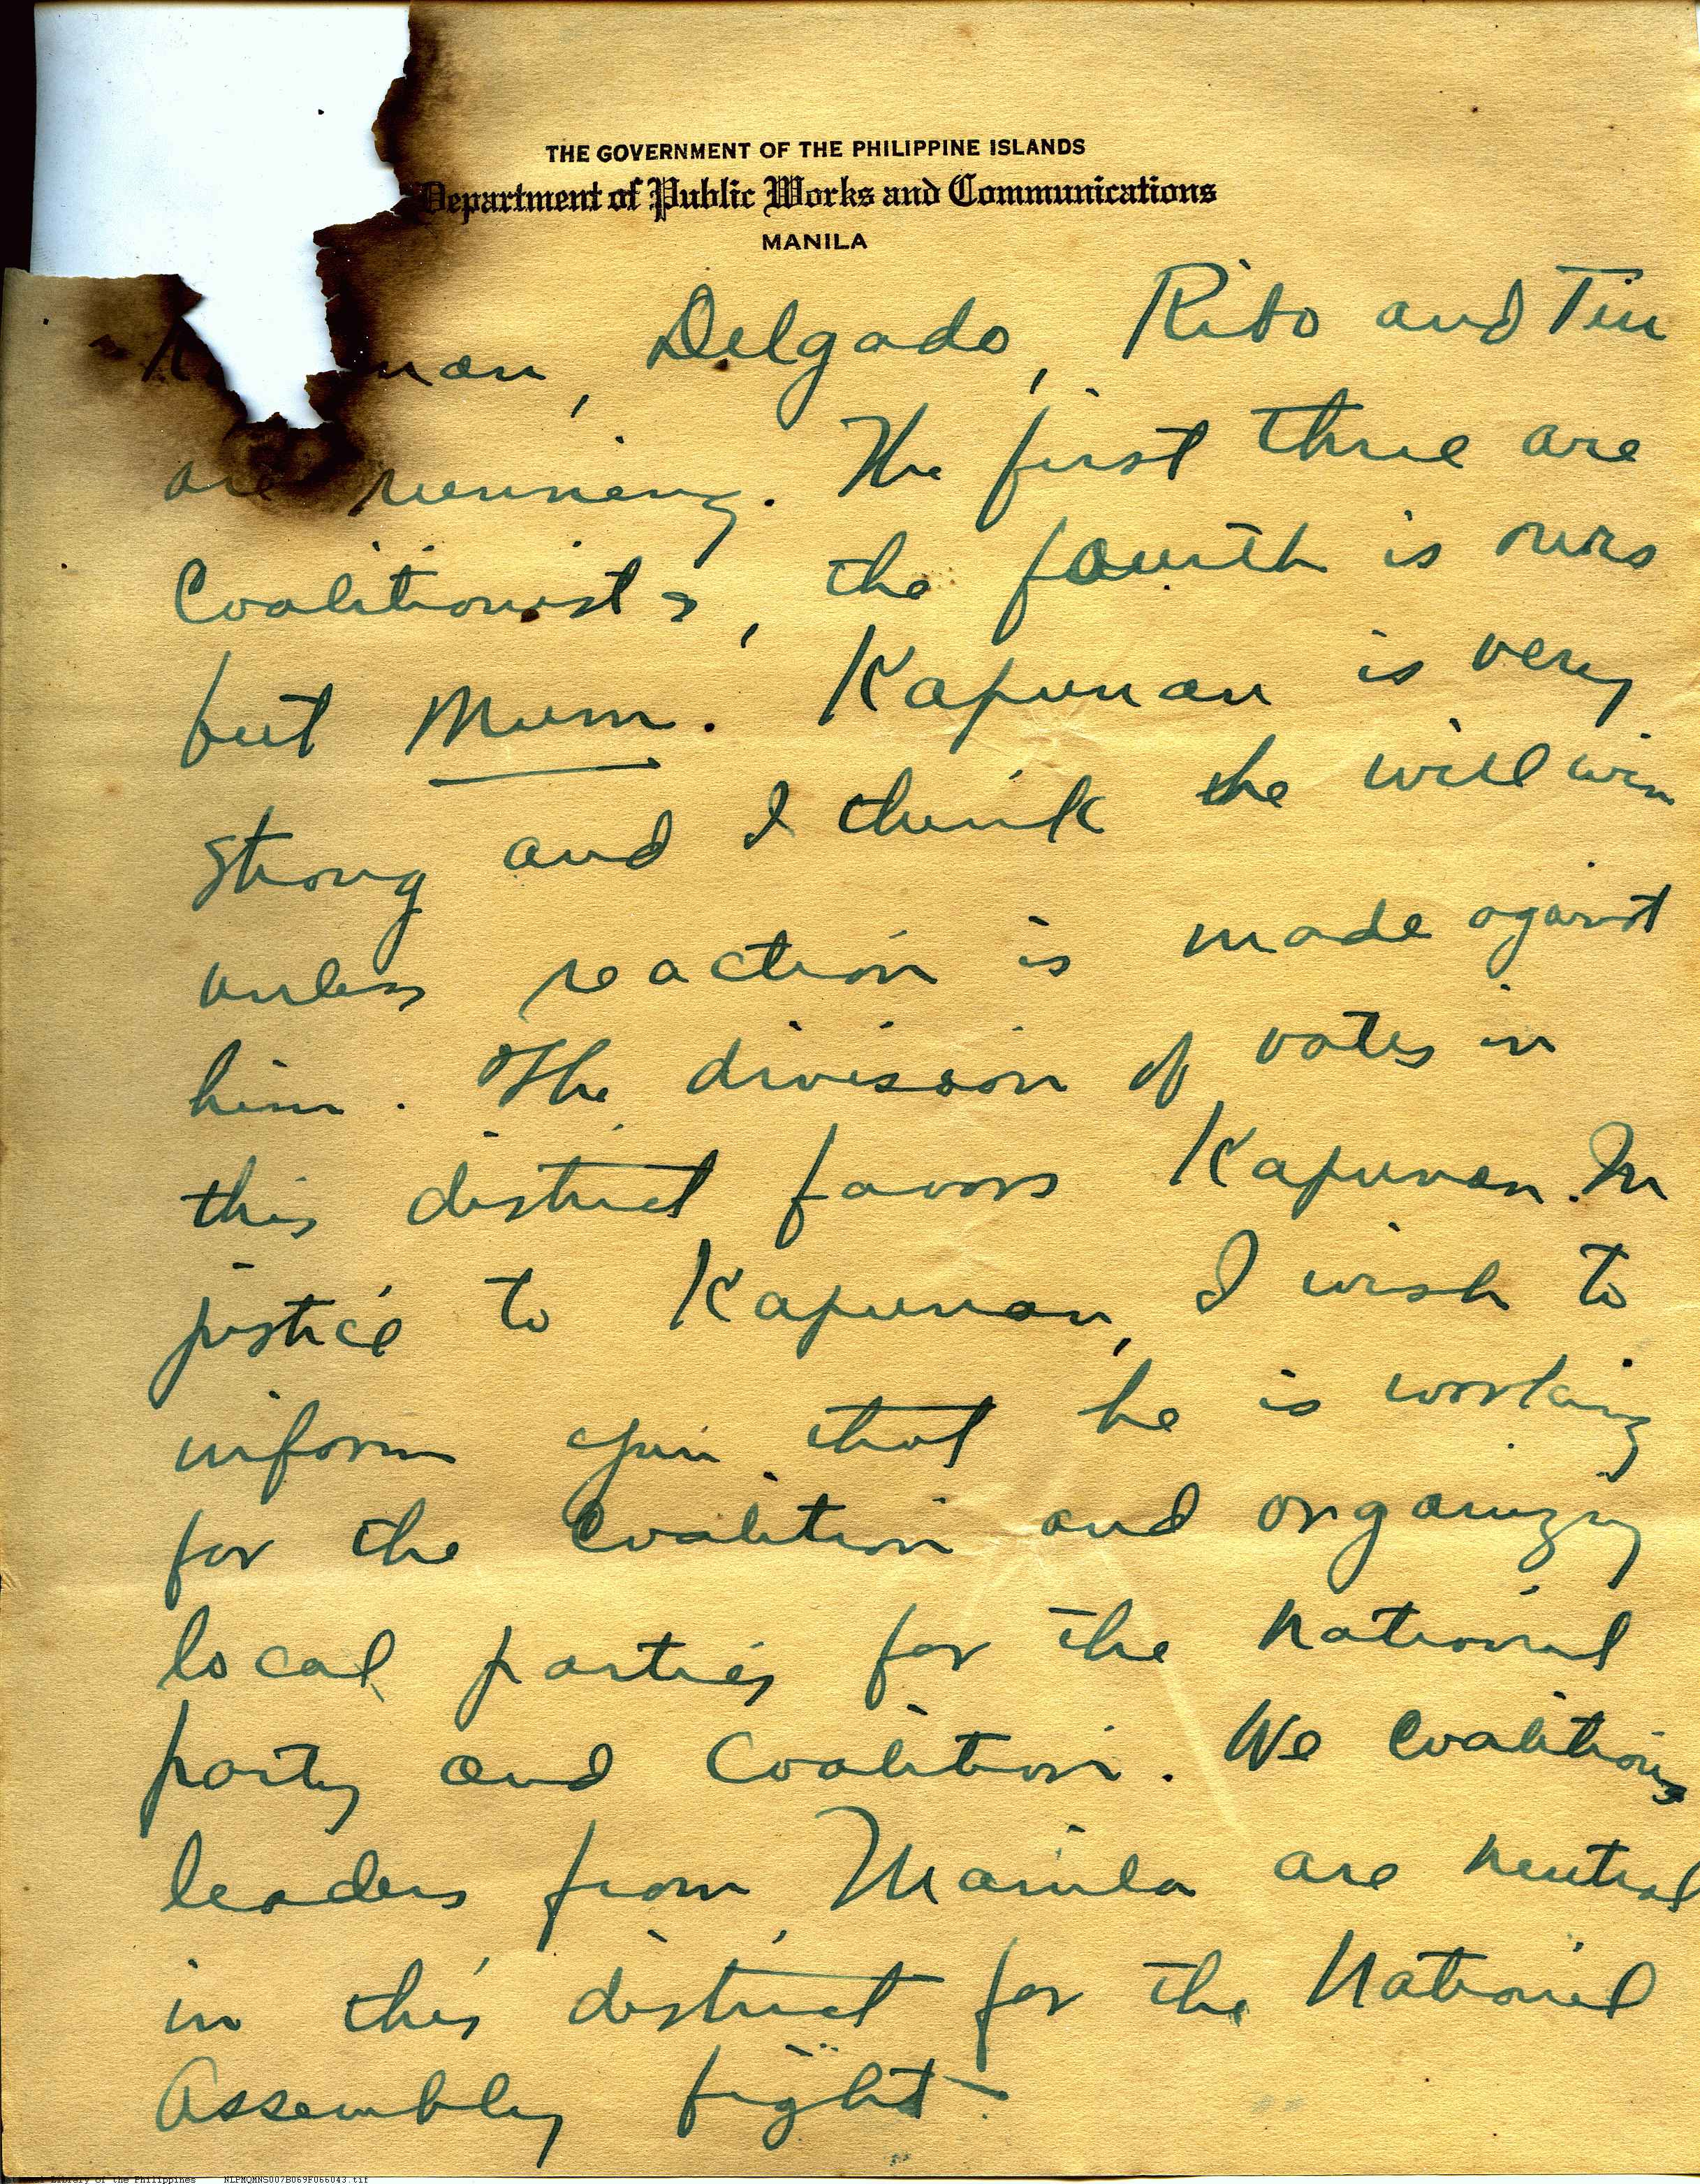 THE GOVERNMENT OF THE PHILIPPINE ISLANDS
Department of Public Works and Communications
MANILA
K nan, Delgado, Ribo and Tin
are running. The first three are
Coalitionists, the fourth is ours
but Mum. Kapunan is very
strong and I think he will win
unless reaction is made against
him. The division of votes in
this district favors Kapunan. In
justice to Kapunan, I wish to
inform you that he is working
for the Coalition and organizing
local parties for the National
party and Coalition. We Coalition
leaders from Manila are neutral
in this district for the National
Assembly fight-
Library of the Philippines NLPMQMNS007B069F066043.tif